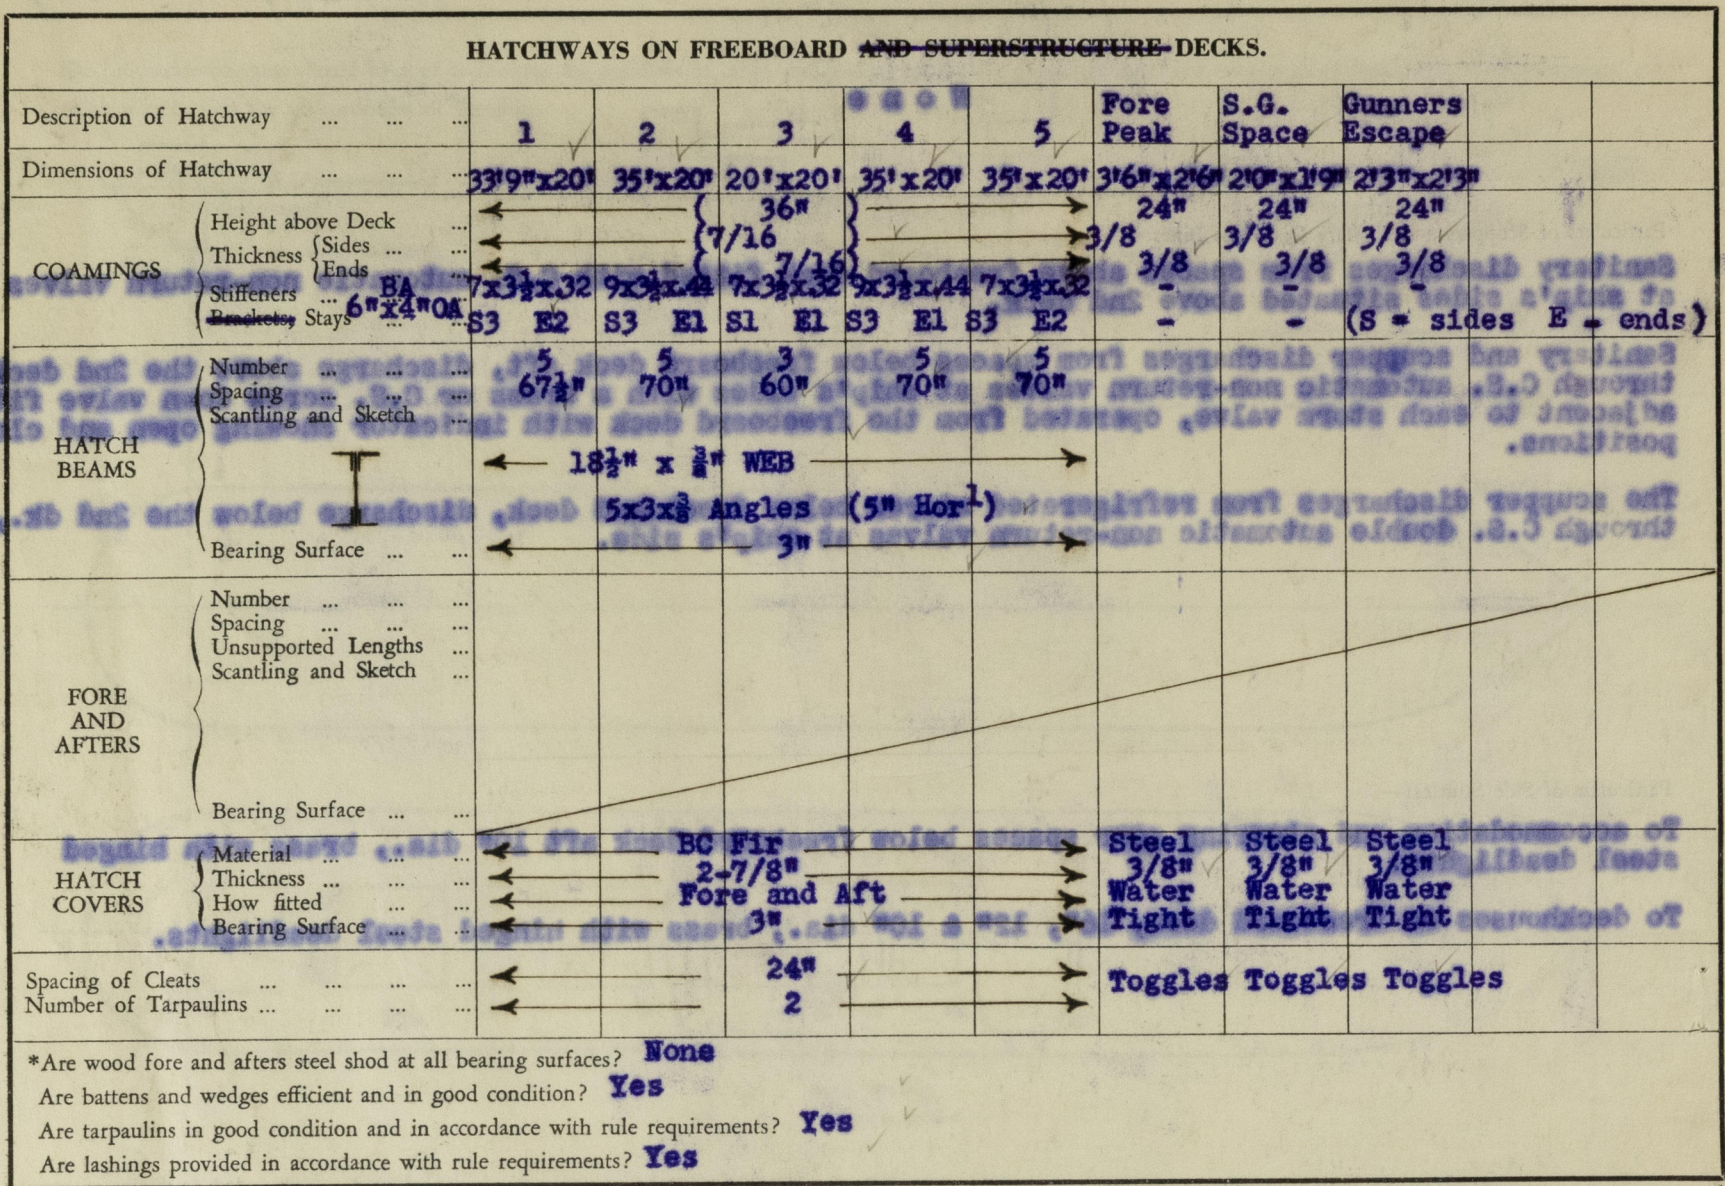 HATCHWAYS ON FREEBOARD AND SUPERSTRUCTURE DECKS.
Description of Hatchway ... ... ... 1 2 3 4 5 Fore Peak S.G. Space Gunners Escape
Dimensions of Hatchway ... ... ... 33'9"x20' 35'x20' 20'x20' 35'x20' 35'x20' 3'6"x2'6" 2'0"x1'9" 2'3"x2'3"
COAMINGS
Height above Deck ... 36" 24" 24" 24"
Thickness { Sides ... ... 7/16 3/8 3/8 3/8
Ends ... ... 7/16 3/8 3/8 3/8
Stiffeners ... BA ... 7x3½x.32 9x3½x.44 7x3½x.32 9x3½x.44 7x3½x.32 - - -
Brackets, Stays 6"x4"OA ... S3 E2 S3 E1 S1 E1 S3 E1 S3 E2 - - (S = sides E = ends)
HATCH BEAMS
Number ... ... ... 5 5 3 5 5
Spacing ... ... ... 67½" 70" 60" 70" 70"
Scantling and Sketch ...
18½" x ⅜" WEB
5x3x⅜ Angles (5" Horl)
Bearing Surface ... ... 3"
FORE AND AFTERS
Number ... ... ...
Spacing ... ... ...
Unsupported Lengths ...
Scantling and Sketch ...
Bearing Surface ... ...
HATCH COVERS
Material ... ... ... BC Fir Steel Steel Steel
Thickness ... ... ... 2-7/8" 3/8" 3/8" 3/8"
How fitted ... ... Fore and Aft Water Water Water
Bearing Surface ... ... 3" Tight Tight Tight
Spacing of Cleats ... ... ... ... 24" Toggles Toggles Toggles
Number of Tarpaulins ... ... ... ... 2
*Are wood fore and afters steel shod at all bearing surfaces? None
Are battens and wedges efficient and in good condition? Yes
Are tarpaulins in good condition and in accordance with rule requirements? Yes
Are lashings provided in accordance with rule requirements? Yes